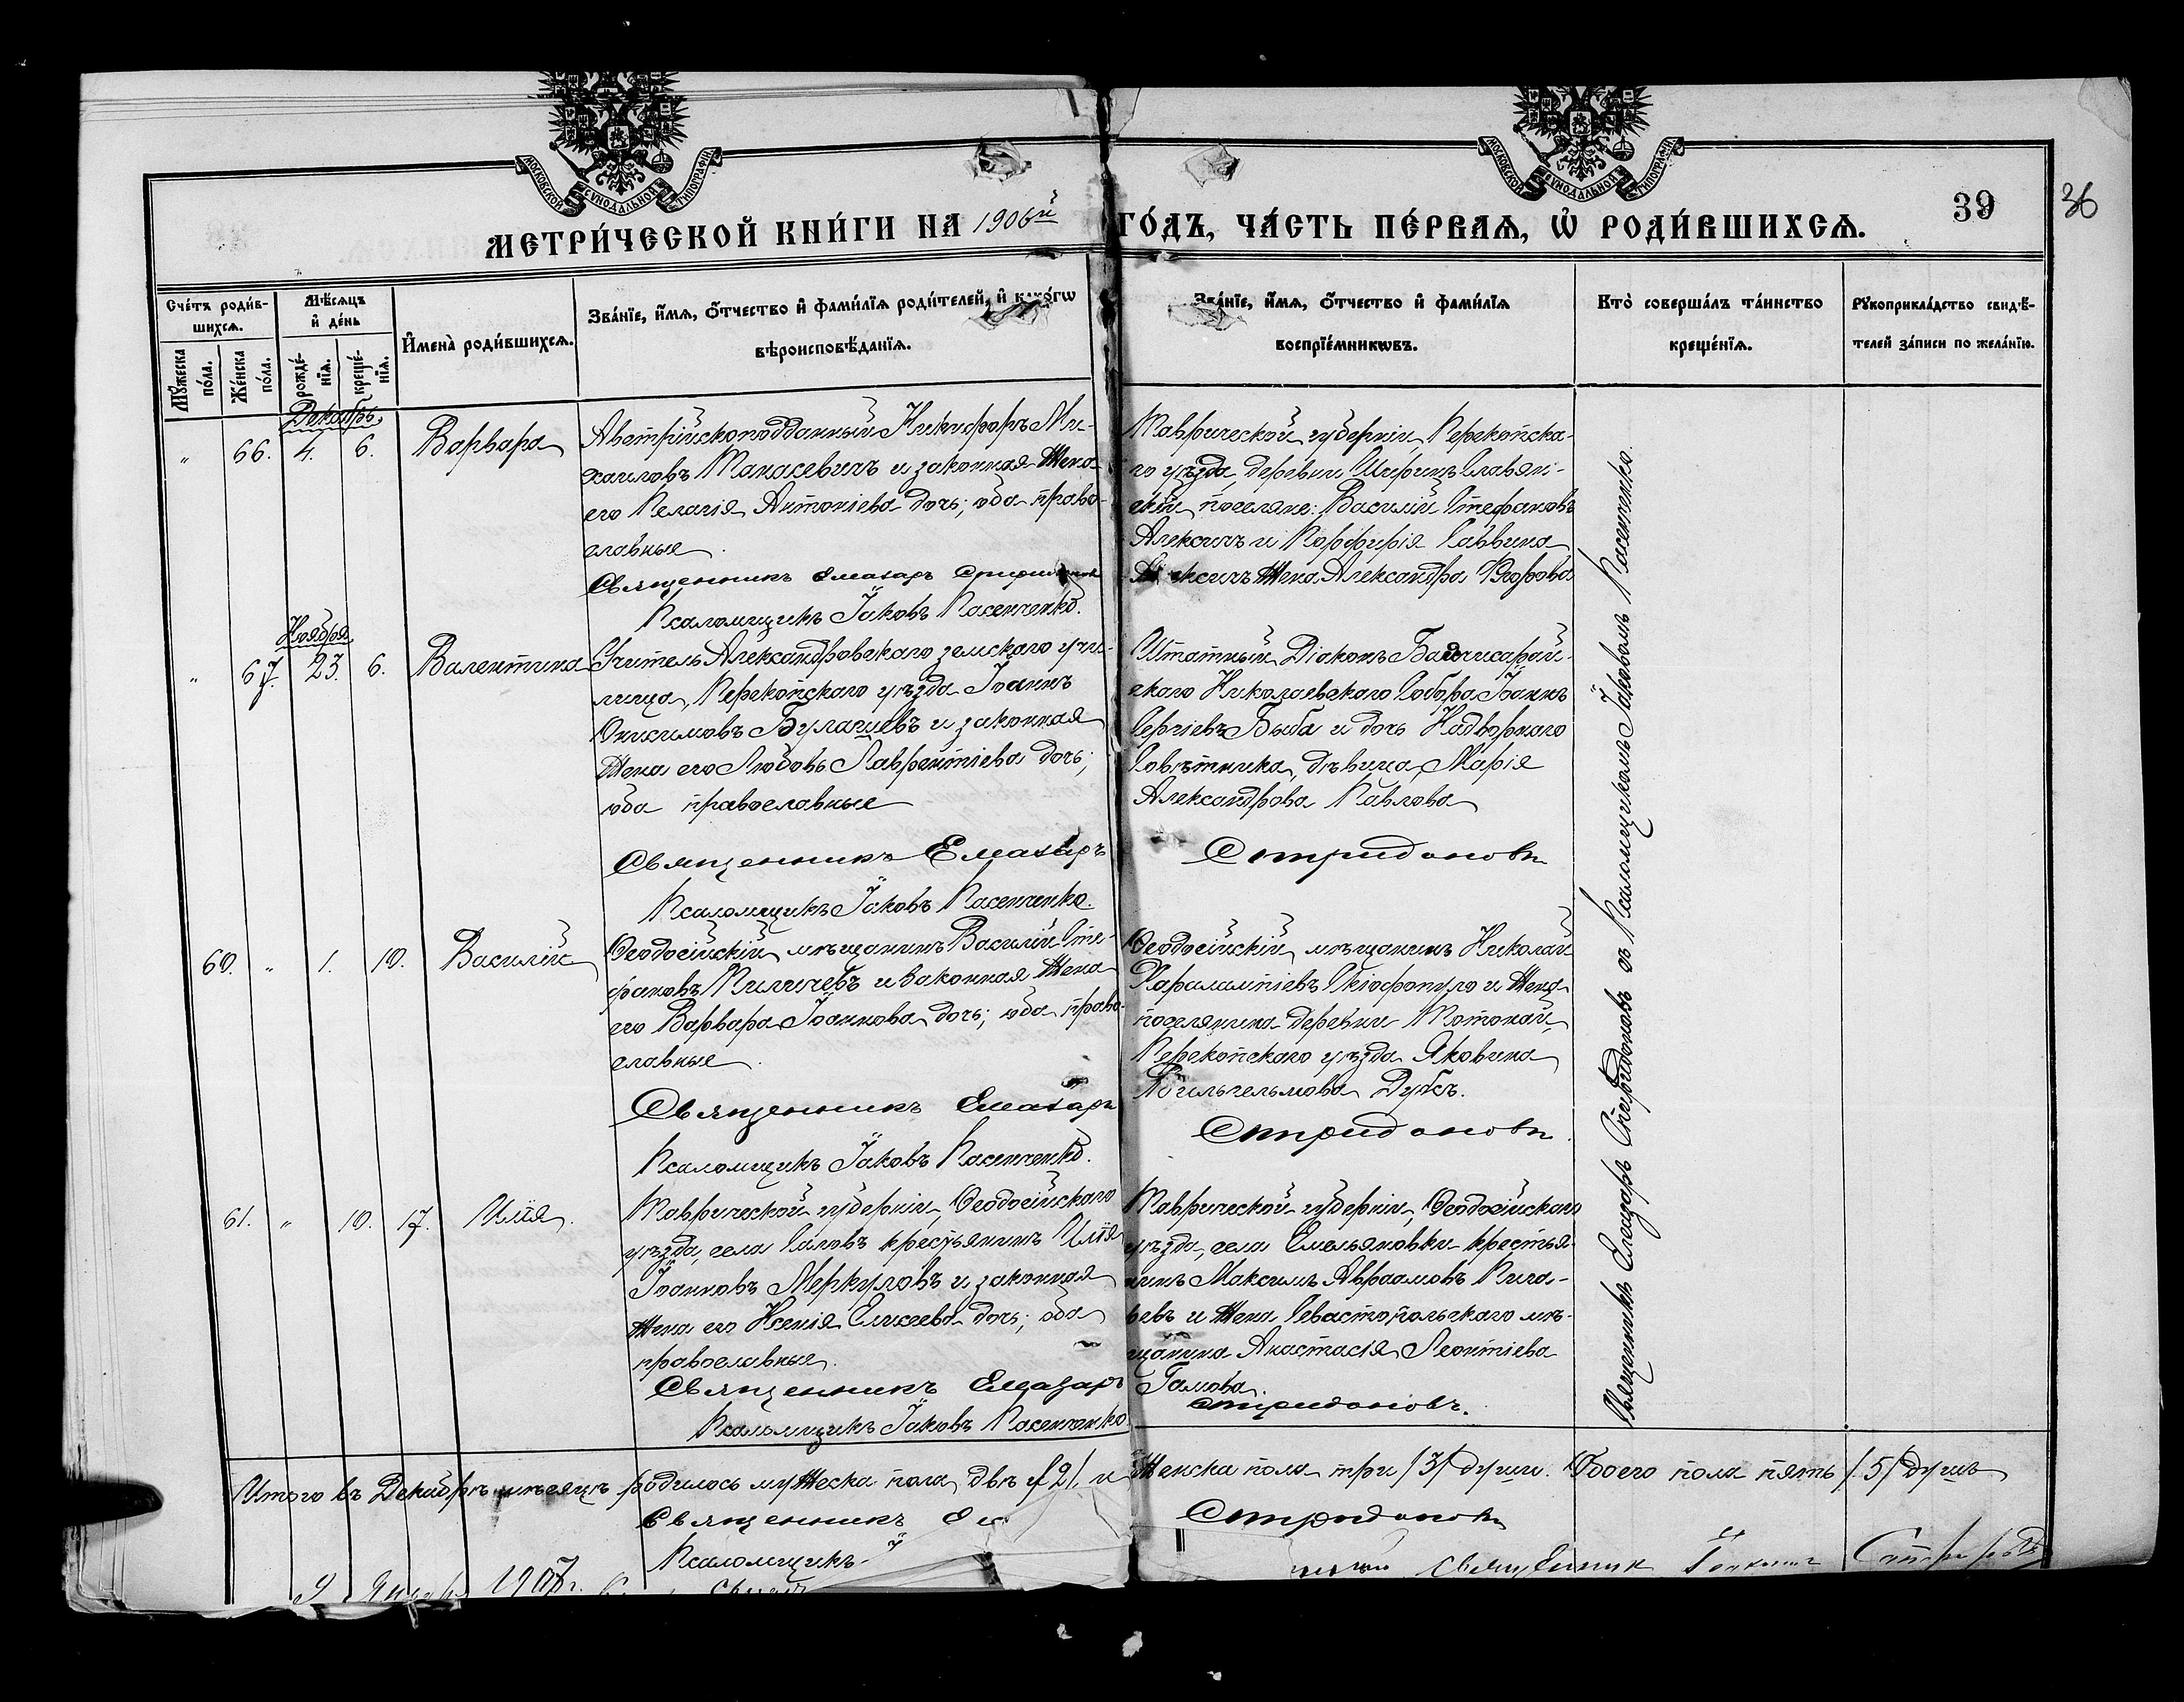 МОСКОВСКОЙ СѴНОДАЛЬНОЙ ТИПОГРАФІИ
МОСКОВСКОЙ СѴНОДАЛЬНОЙ ТИПОГРАФІИ
МЕТРИ́ЧЕСКОЙ КНИ́ГИ НА 1906й ГО́ДЪ, ЧА́СТЬ ПЕ́РВАѦ, Ѡ҆ РОДИ́ВШИХСѦ.
39
36
Сче́тъ роди́в-
шихсѧ.
Мꙋ́жеска по́ла.
Же́нска по́ла.
Мѣ́сѧцъ
и҆ де́нь
рожде́-нїѧ.
креще́-нїѧ.
И҆мена̀ роди́вшихсѧ.
Зва́нїе, и҆́мѧ, ѻ҆́тчество и҆ фами́лїѧ роди́телей, и҆ како́гѡ
вѣроисповѣ́данїѧ.
Зва́нїе, и҆́мѧ, ѻ҆́тчество и҆ фами́лїѧ
воспрїе́мникѡвъ.
Кто̀ соверша́лъ та́инство
креще́нїѧ.
Рꙋкоприкла́дство свидѣ́-
телей за́писи по жела́нїю.
Декабрь
" 66. 4. 6. Варвара
Австрійскоподданный Никифоръ Ми-
хаиловъ Танасевичъ и законная жена
его Пелагія Антоніева дочь; оба право-
славные.
Священникъ Елеазаръ Спиридоновъ
Псаломщикъ Іаковъ Пасенченко.
Таврической губерніи, Перекопска-
го уѣзда, деревни
поселяне: Василій Стефановъ
Алексичъ и Порфирія Саввина
Алексичъ жена Александра
Ноября
" 67. 23. 6. Валентина
Учитель Александровскаго земскаго учи-
лища, Перекопскаго уѣзда Іоаннъ
Онисимовъ Булащевъ и законная
жена его Любовь Лаврентіева дочь;
оба православные
Священникъ Елеазаръ Спиридоновъ
Псаломщикъ Іаковъ Пасенченко.
Штатный Діаконъ Бахчисарай-
скаго Николаевскаго Собора Іоаннъ
Сергіевъ Быба и дочь Надворнаго
Совѣтника, дѣвица, Марія
Александрова Павлова
60. " 1. 10. Василій
Ѳеодосійскій мѣщанинъ Василій Сте-
фановъ Пиличевъ и законная жена
его Варвара Іоаннова дочь; оба право-
славные.
Священникъ Елеазаръ Спиридоновъ.
Псаломщикъ Іаковъ Пасенченко.
Ѳеодосійскій мѣщанинъ Николай
Харалампіевъ Скіофопуло и жена
поселянина деревни Тотонай,
Перекопскаго уѣзда Яковина
Вильгельмова Дуксъ.
61. " 10. 17. Илія.
Таврической губерніи, Ѳеодосійскаго
уѣзда, села Саловъ крестьянинъ Илія
Іоанновъ Меркуловъ и законная
жена его Ксенія Елисеева дочь; оба
православные.
Священникъ Елеазаръ Спиридоновъ.
Псаломщикъ Іаковъ Пасенченко
Таврической губерніи, Ѳеодосійскаго
уѣзда, села Емельяновки крестья-
нинъ Максимъ Авраамовъ Пига-
ревъ и жена Севастопольскаго мѣ-
щанина Анастасія Леонтіева
Гамова.
Священникъ Елеазаръ Спиридоновъ съ Псаломщикомъ Іаковомъ Пасенченко.
Итого въ Декабрѣ мѣсяцѣ родилось мужеска пола двѣ /2/ и женска пола три /3/ души. Обоего пола пять /5/ душъ
Священникъ Спиридоновъ
Псаломщикъ
9 Января 1907 г. священник